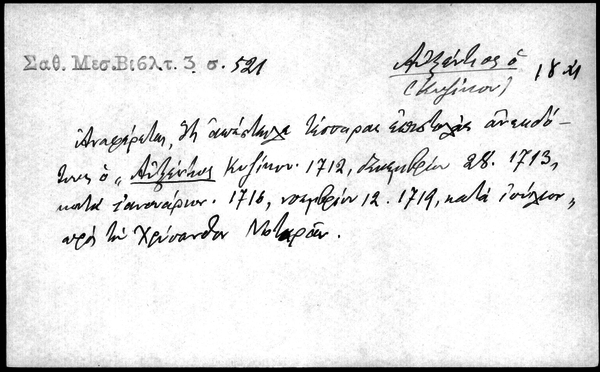 Σαθ. Μεσ.Βιβλ τ. 3 σ. 521
Αὐξέντιος ὁ
(Κυζίκου)
18 αι
Ἀναφέρεται, ὅτι ἀπέστειλε τέσσαρας ἐπιστολὰς ἀνεκδό-
τους ὁ „ Αὐξέντιος Κυζίκου. 1712, δεκεμβρίου 28. 1713,
κατὰ ἰανουάριον. 1716, νοεμβρίου 12. 1719, κατὰ ἰούλιον „
πρὸς τὸν Χρύσανθον Νοταρᾶν.